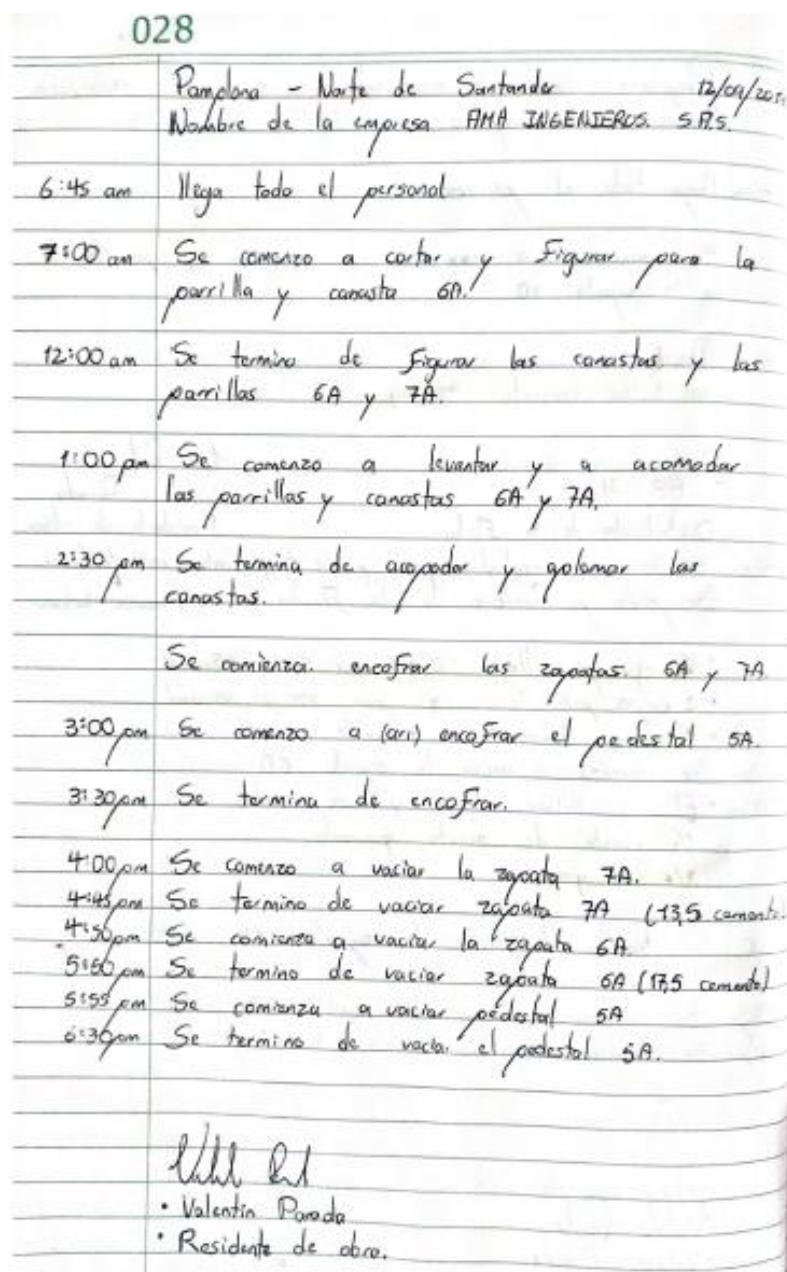 028
Pamplona - Norte de Santander 12/09/20
Nombre de la empresa AMA INGENIEROS. S.A.S.
6:45 am llega todo el personal
7:00 am Se comenzo a cortar y Figurar para la
parrilla y canasta 6A.
12:00 am Se termino de Figurar las canastas y las
parrillas 6A y 7A.
1:00 pm Se comenzo a levantar y a acomodar
las parrillas y canastas 6A y 7A.
2:30 pm Se termina de acopodar y golomar las
canastas.
Se comienza. encofrar las zapatas 6A y 7A
3:00 pm Se comenzo a (ari) encofrar el pedestal 5A.
3:30 pm Se termina de encofrar.
4:00 pm Se comenzo a vaciar la zapata 7A.
4:45 pm Se termino de vaciar zapata 7A (13,5 cemento.
4:50 pm Se comienza a vaciar la zapata 6A
5:50 pm Se termino de vaciar zapata 6A (17,5 cemento)
5:55 pm Se comienza a vaciar pedestal 5A
6:30 pm Se termino de vacia. el pedestal 5A.
• Valentin Parada
• Residente de obra.